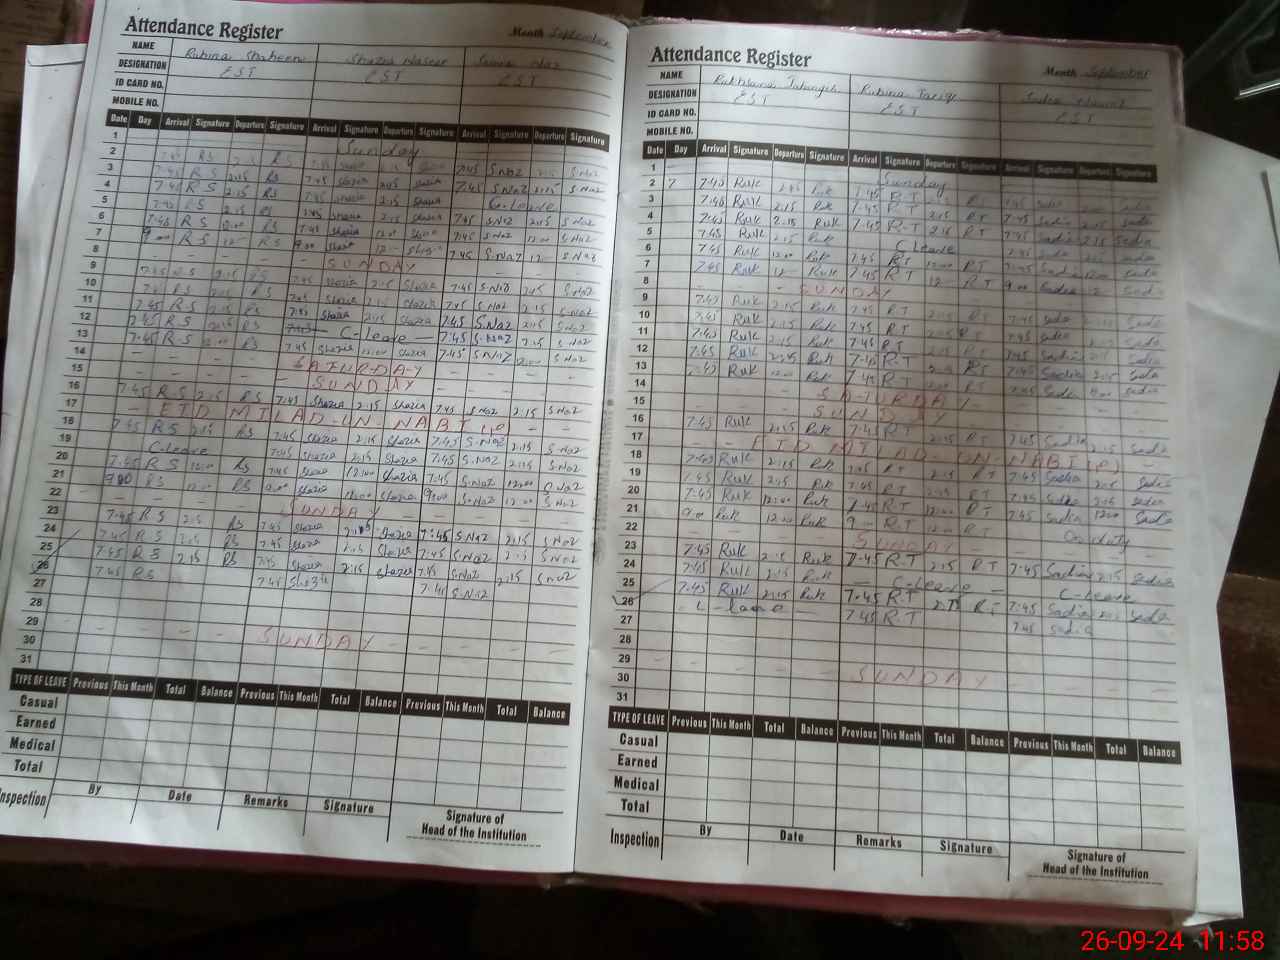 Attendance Register
Month September
NAME Rubina Shaheen Shazia Naseer Saima Naz
DESIGNATION EST EST EST
ID CARD NO.
MOBILE NO.
Date Day Arrival Signature Departure Signature Arrival Signature Departure Signature Arrival Signature Departure Signature
1 Sunday
2 7:45 RS 2:15 RS 7:45 2:15 7:45 S.Naz 2:15 S.Naz
3 7:45 RS 2:15 RS 7:45 Shazia 2:15 Shazia 7:45 S.Naz 2:15 S.Naz
4 7:45 RS 2:15 RS 7:45 Shazia 2:15 Shazia C-Leave
5 7:45 RS 2:15 RS 7:45 Shazia 2:15 Shazia 7:45 S.Naz 2:15 S.Naz
6 7:45 RS 12:00 RS 7:45 Shazia 12:00 Shazia 7:45 S.Naz 12:00 S.Naz
7 9:00 RS 12:00 RS 9:00 Shazia 12:00 Shazia 7:45 S.Naz 12 S.Naz
8 SUNDAY
9 7:45 RS 2:15 RS 7:45 Shazia 2:15 Shazia 7:45 S.Naz 2:15 S.Naz
10 7:45 RS 2:15 RS 7:45 Shazia 2:15 Shazia 7:45 S.Naz 2:15 S.Naz
11 7:45 RS 2:15 RS 7:45 Shazia 2:15 Shazia 7:45 S.Naz 2:15 S.Naz
12 7:45 RS 2:15 RS 7:45 C-Leave 7:45 S.Naz 2:15 S.Naz
13 7:45 RS 12:00 RS 7:45 Shazia 12:00 Shazia 7:45 S.Naz 12:00 S.Naz
14 SATURDAY
15 SUNDAY
16 7:45 RS 2:15 RS 7:45 Shazia 2:15 Shazia 7:45 S.Naz 2:15 S.Naz
17 EID MILAD-UN-NABI
18 7:45 RS 2:15 RS 7:45 Shazia 2:15 Shazia 7:45 S.Naz 2:15 S.Naz
19 C-Leave 7:45 Shazia 2:15 Shazia 7:45 S.Naz 2:15 S.Naz
20 7:45 RS 12:00 RS 7:45 Shazia 12:00 Shazia 7:45 S.Naz 12:00 S.Naz
21 9:00 RS 12:00 RS 9:00 Shazia 12:00 Shazia 9:00 S.Naz 12:00 S.Naz
22 SUNDAY
23 7:45 RS 2:15 RS 7:45 Shazia 2:15 Shazia 7:45 S.Naz 2:15 S.Naz
24 7:45 RS 2:15 RS 7:45 Shazia 2:15 Shazia 7:45 S.Naz 2:15 S.Naz
25 7:45 RS 2:15 RS 7:45 Shazia 2:15 Shazia 7:45 S.Naz 2:15 S.Naz
26 7:45 RS 7:45 Shazia 7:45 S.Naz
27
28
29 SUNDAY
30
31
TYPE OF LEAVE Previous This Month Total Balance Previous This Month Total Balance Previous This Month Total Balance
Casual
Earned
Medical
Total
Inspection By Date Remarks Signature
Signature of
Head of the Institution
Attendance Register
Month September
NAME Rukhsana Jahangir Rubina Tariq Sadia
DESIGNATION EST EST EST
ID CARD NO.
MOBILE NO.
Date Day Arrival Signature Departure Signature Arrival Signature Departure Signature Arrival Signature Departure Signature
1 Sunday
2 7 7:45 Ruk 2:15 Ruk 7:45 R.T R 7:45 Sadia Sadia
3 7:45 Ruk 2:15 Ruk 7:45 R.T 2:15 R.T 7:45 Sadia 2:15 Sadia
4 7:45 Ruk 2:15 Ruk 7:45 R.T 2:15 R.T 7:45 Sadia 2:15 Sadia
5 7:45 Ruk 2:15 Ruk C leave 7:45 Sadia 2:15 Sadia
6 7:45 Ruk 12:00 Ruk 7:45 RT 12:00 R.T 7:45 Sadia 12:00 Sadia
7 7:45 Ruk 12 Ruk 7:45 R.T 12 R.T 9:00 Sadia 12 Sadia
8 SUNDAY
9 7:45 Ruk 2:15 Ruk 7:45 R.T 2:15 RT 7:45 Sadia Sadia
10 7:45 Ruk 2:15 Ruk 7:45 RT 2:15 RT 7:45 Sadia 2:15 Sadia
11 7:45 Ruk 2:15 Ruk 7:45 RT 2:15 RT 7:45 Sadia 2:15 Sadia
12 7:45 Ruk 2:15 Ruk 7:45 R.T 2:15 RT 7:45 Sadia 2:15 Sadia
13 7:45 Ruk 12:00 Ruk 7:45 R.T RT 7:45 Sadia 12:00 Sadia
14 SATURDAY
15 SUNDAY
16 7:45 Ruk 2:15 Ruk 7:45 R.T 2:15 RT 7:45 Sadia 2:15 Sadia
17 EID MILAD-UN-NABI (P)
18 7:45 Ruk 2:15 Ruk 7:45 RT 2:15 RT 7:45 Sadia 2:15 Sadia
19 7:45 Ruk 2:15 Ruk 7:45 R.T 2:15 R.T 7:45 Sadia 2:15 Sadia
20 7:45 Ruk 12:00 Ruk 7:45 R.T 12:00 R.T 7:45 Sadia 12:00 Sadia
21 9:00 Ruk 12:00 Ruk 9 R.T 12:00 R.T On duty
22 SUNDAY
23 7:45 Ruk 2:15 Ruk 7:45 R.T 2:15 R.T 7:45 Sadia 2:15 Sadia
24 7:45 Ruk 2:15 Ruk C-Leave C-Leave
25 7:45 Ruk 2:15 Ruk 7:45 R.T 2:15 R.T 7:45 Sadia 2:15 Sadia
26 C-leave 7:45 R.T 7:45 Sadia
27
28
29 SUNDAY
30
31
TYPE OF LEAVE Previous This Month Total Balance Previous This Month Total Balance Previous This Month Total Balance
Casual
Earned
Medical
Total
Inspection By Date Remarks Signature
Signature of
Head of the Institution
26-09-24 11:58